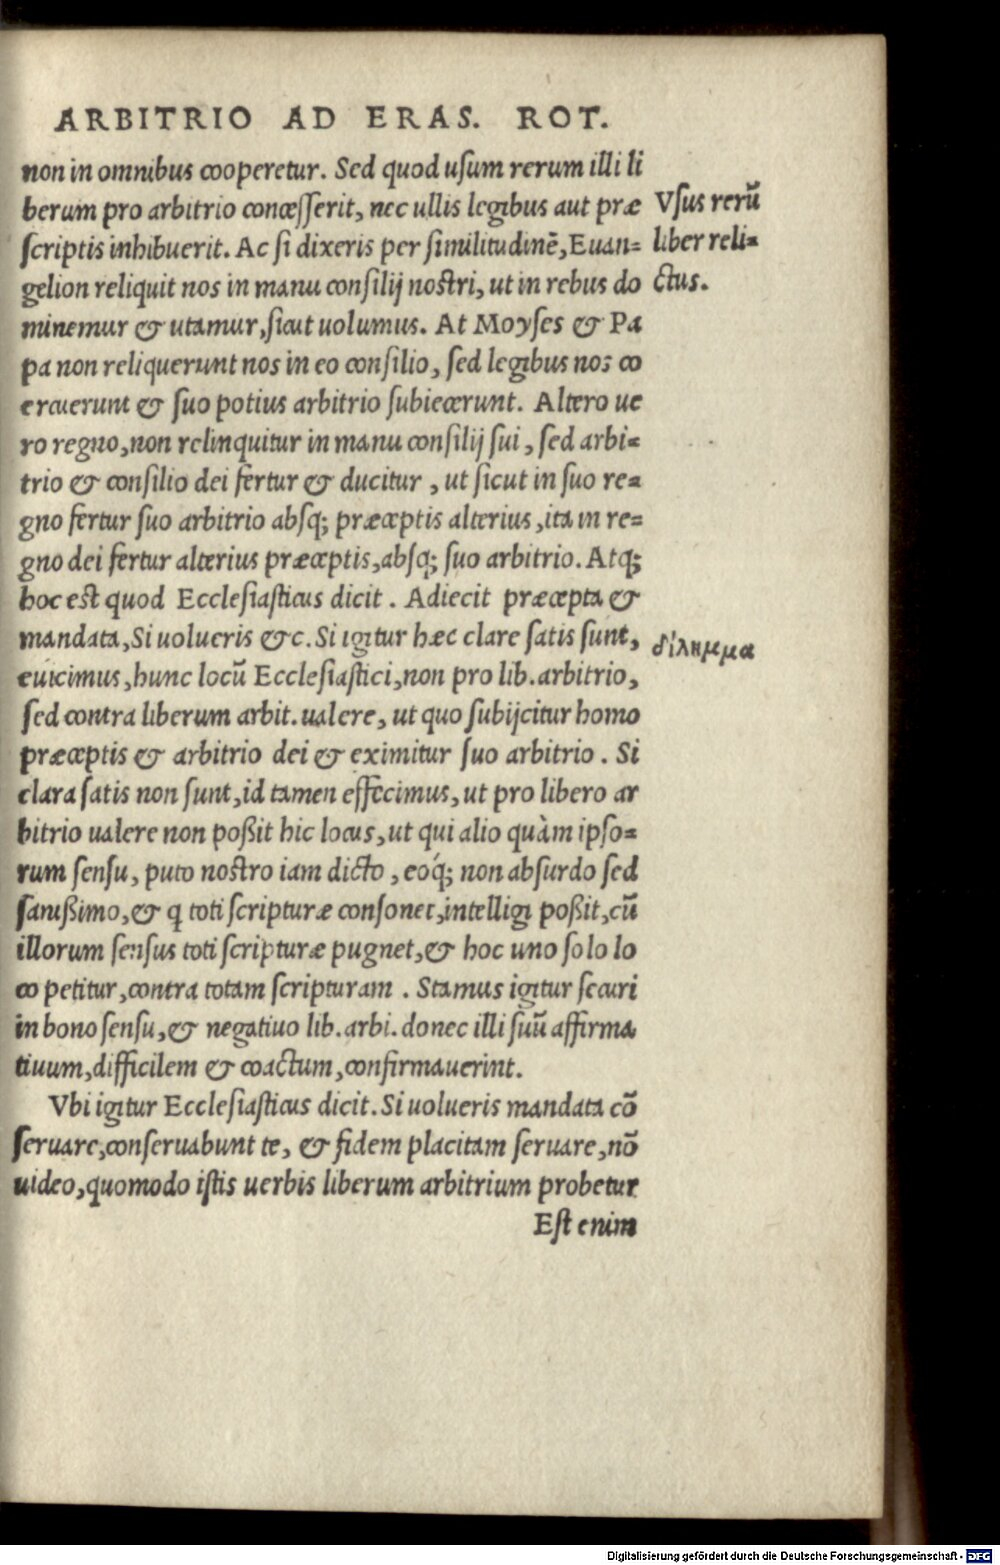 ARBITRIO AD ERAS. ROT.
non in omnibus cooperetur. Sed quod uſum rerum illi li
berum pro arbitrio conceſſerit, nec ullis legibus aut præ
ſcriptis inhibuerit. Ac ſi dixeris per ſimilitudinē, Euan=
gelion reliquit nos in manu conſilij noſtri, ut in rebus do
minemur & utamur, ſicut uolumus. At Moyſes & Pa
pa non reliquerunt nos in eo conſilio, ſed legibus nos co
ercuerunt & ſuo potius arbitrio ſubiecerunt. Altero ue
ro regno, non relinquitur in manu conſilij ſui, ſed arbi=
trio & conſilio dei fertur & ducitur, ut ſicut in ſuo re=
gno fertur ſuo arbitrio abſq; præceptis alterius, ita in re=
gno dei fertur alterius præceptis, abſq; ſuo arbitrio. Atq;
hoc eſt quod Eccleſiaſticus dicit. Adiecit præcepta &
mandata, Si uolueris &c. Si igitur hæc clare ſatis ſunt,
euicimus, hunc locū Eccleſiaſtici, non pro lib. arbitrio,
ſed contra liberum arbit. ualere, ut quo ſubijcitur homo
præceptis & arbitrio dei & eximitur ſuo arbitrio. Si
clara ſatis non ſunt, id tamen effecimus, ut pro libero ar
bitrio ualere non poßit hic locus, ut qui alio quàm ipſo=
rum ſenſu, puto noſtro iam dicto, eóq; non abſurdo ſed
ſanißimo, & q toti ſcripturæ conſonet, intelligi poßit, cū
illorum ſenſus toti ſcripturæ pugnet, & hoc uno ſolo lo
co petitur, contra totam ſcripturam. Stamus igitur ſecuri
in bono ſenſu, & negatiuo lib. arbi. donec illi ſuū affirma
tiuum, difficilem & coactum, confirmauerint.
Vbi igitur Eccleſiaſticus dicit. Si uolueris mandata cō
ſeruare, conſeruabunt te, & fidem placitam ſeruare, nō
uideo, quomodo iſtis uerbis liberum arbitrium probetur
Eſt enim
Vſus rerū
liber reli=
ctus.
δίλημμα
Digitalisierung gefördert durch die Deutsche Forschungsgemeinschaft - DFG